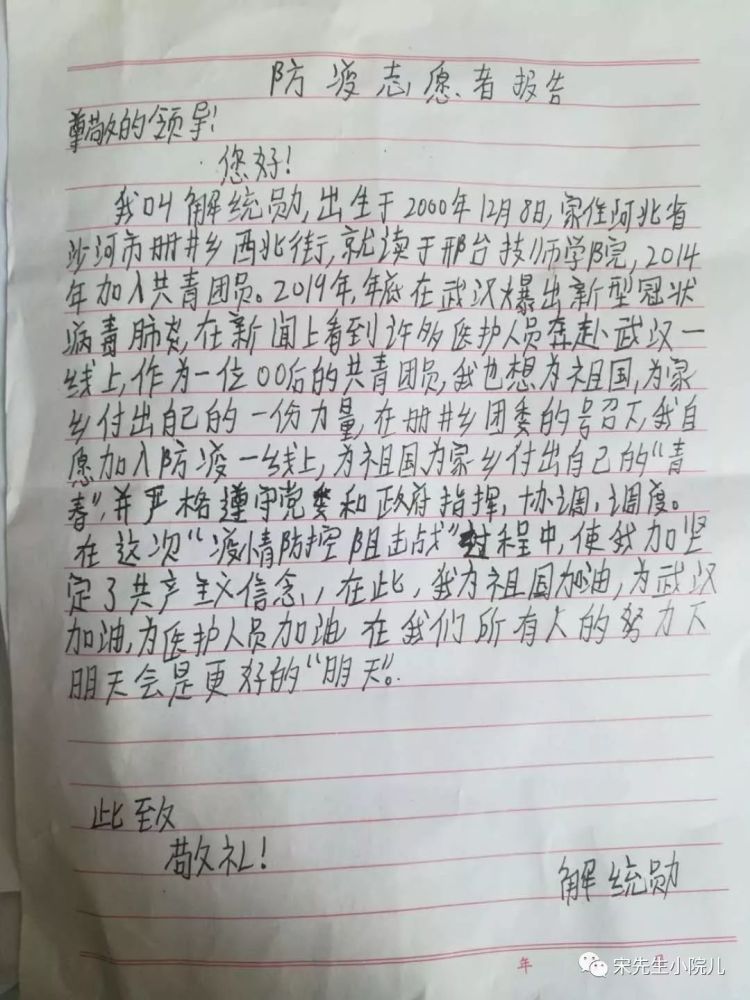 防疫志愿者报告
尊敬的领导!
您好!
我叫解统勋,出生于2000年12月8日,家住河北省
沙河市册井乡西北街,就读于邢台技师学院,2014
年加入共青团员。2019年,年底在武汉爆出新型冠状
病毒肺炎,在新闻上看到许多医护人员奔赴武汉一
线上,作为一位00后的共青团员,我也想为祖国,为家
乡付出自己的一份力量,在册井乡团委的号召下,我自
愿加入防疫一线上,为祖国,为家乡付出自己的“青
春”,并严格遵守党委和政府指挥,协调,调度。
在这次“疫情防控阻击战”过程中,使我加坚
定了共产主义信念,,在此,我为祖国加油,为武汉
加油,为医护人员加油 在我们所有人的努力下
明天会是更好的“明天”。
此致
敬礼!
解统勋
年
宋先生小院儿